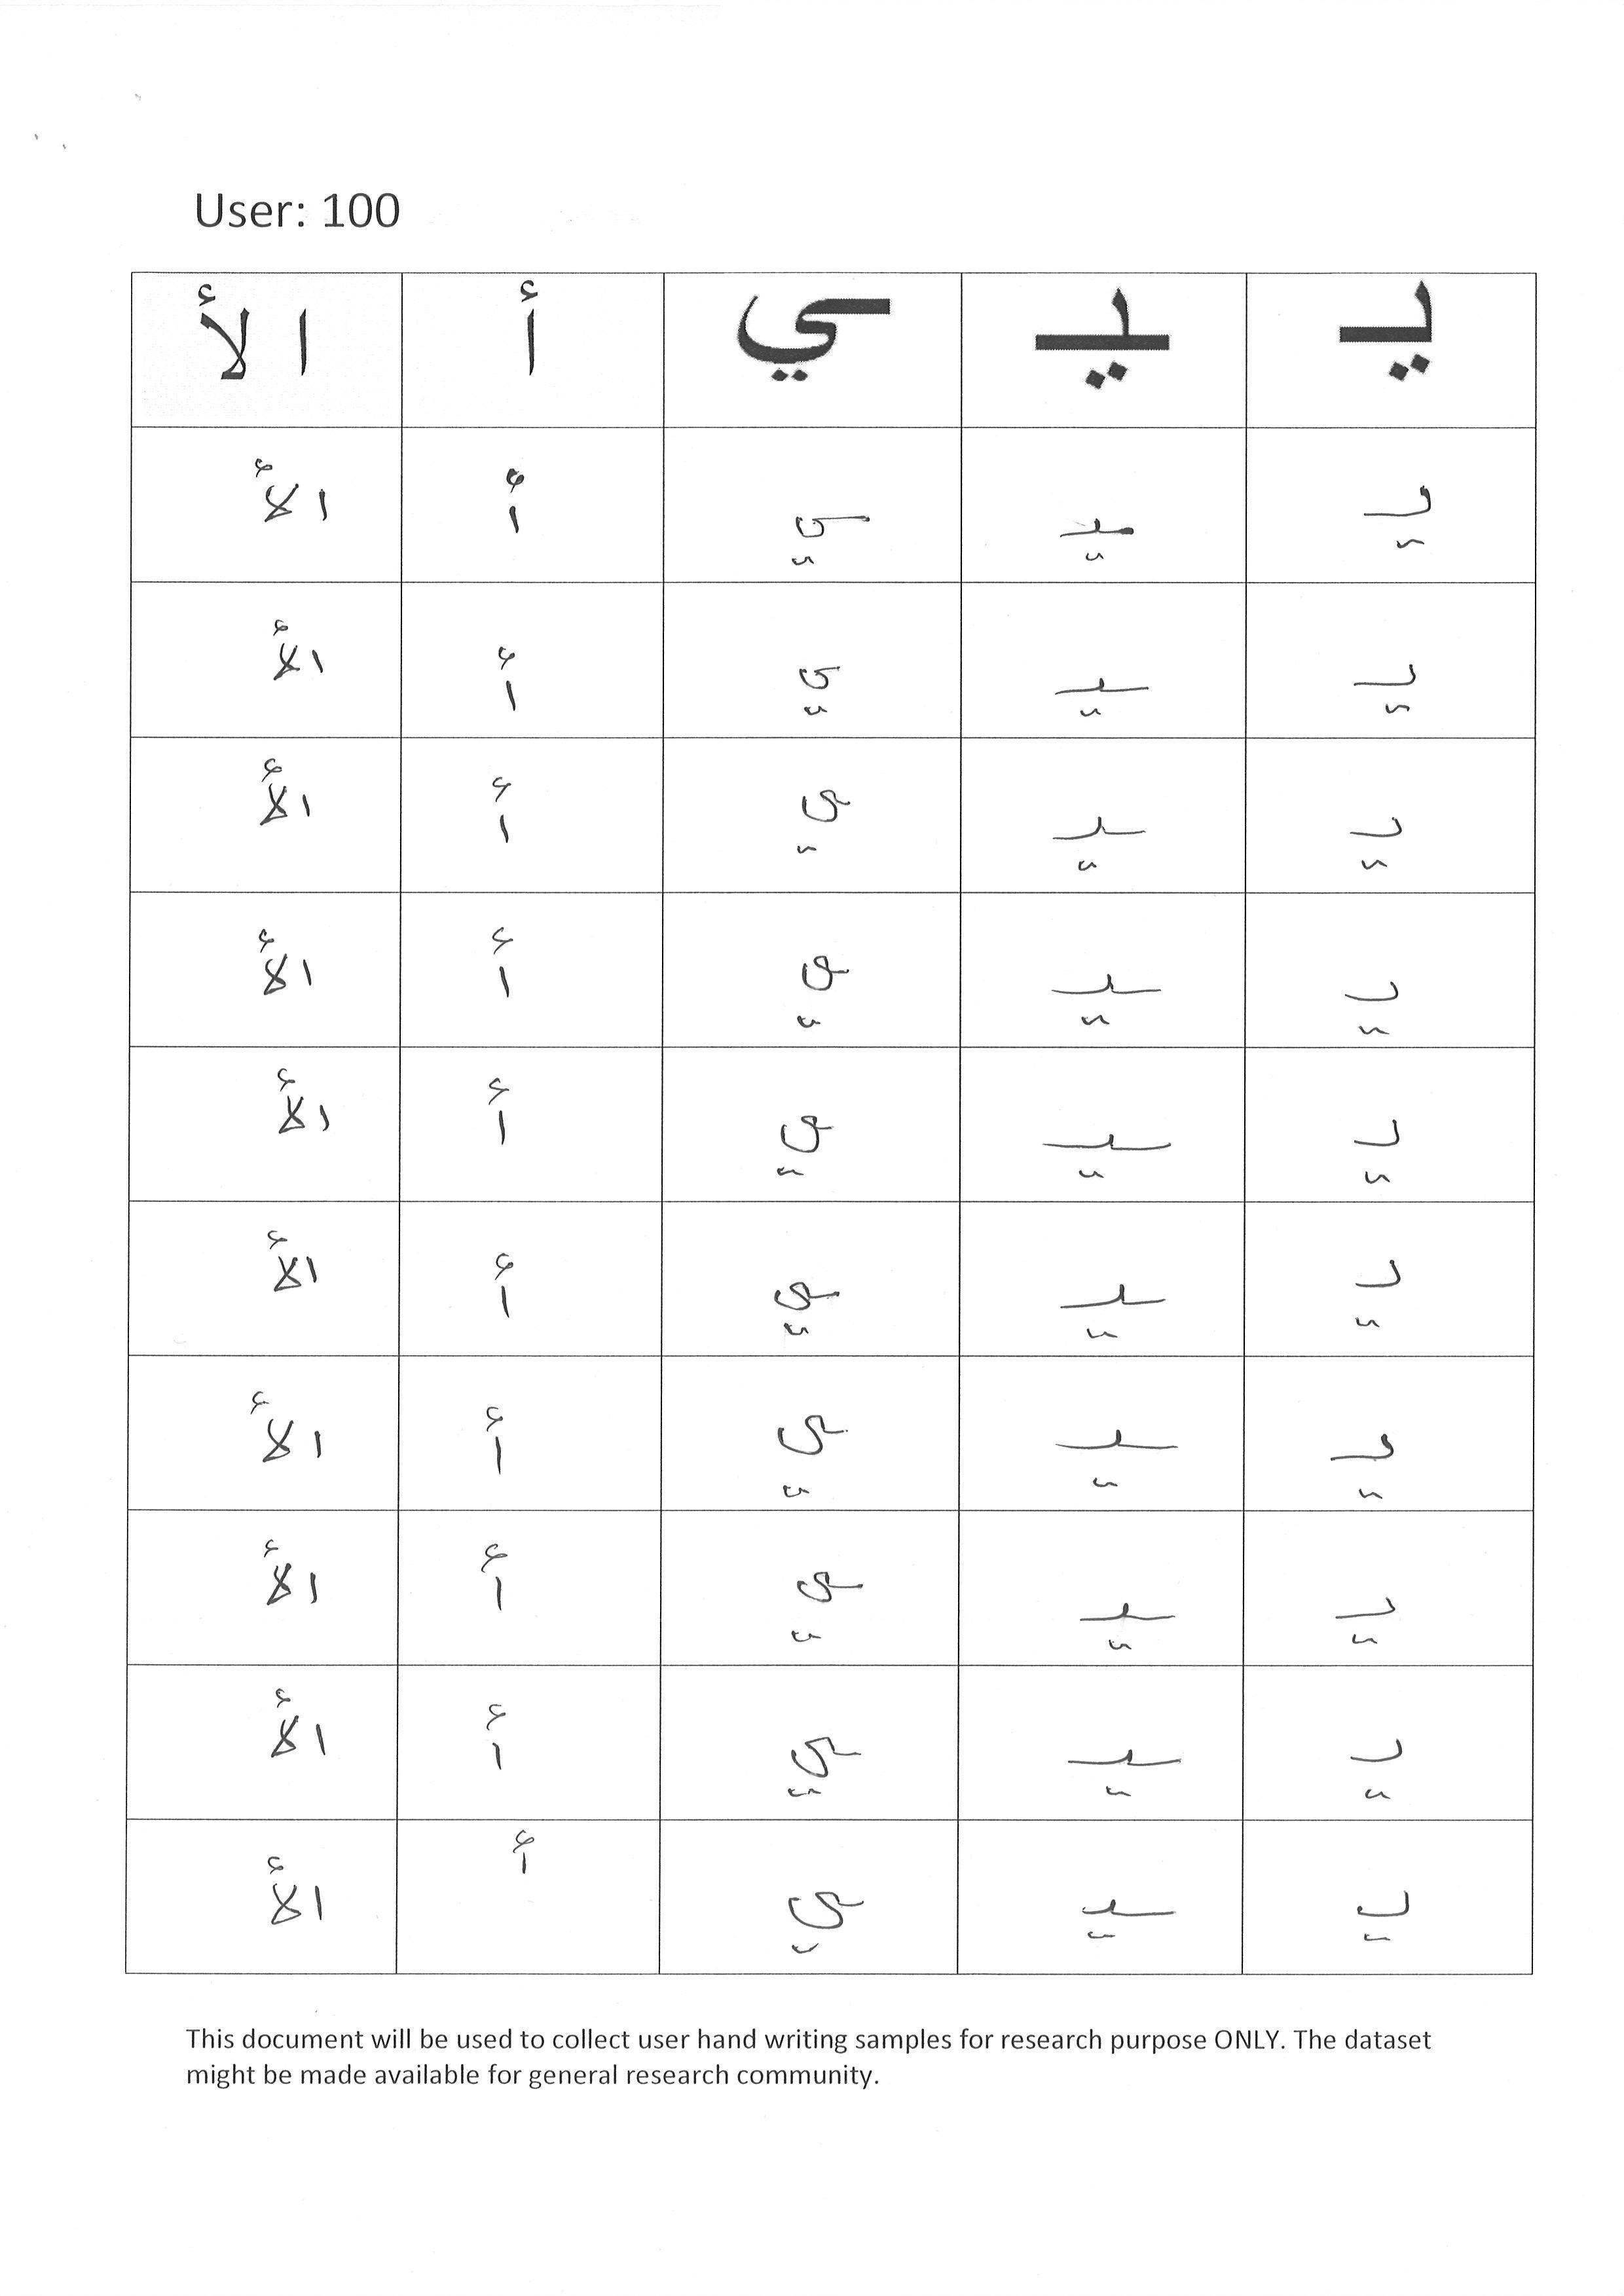 User: 100
يـ ـيـ ـي أ ا لأ
يـ ـيـ ـي أ الأ
يـ ـيـ ـي أ الأ
يـ ـيـ ـي أ الأ
يـ ـيـ ـي أ الأ
يـ ـيـ ـي أ الأ
يـ ـيـ ـي أ الأ
يـ ـيـ ـي أ الأ
يـ ـيـ ـي أ الأ
يـ ـيـ ـي أ الأ
يـ ـيـ ـي أ الأ
This document will be used to collect user hand writing samples for research purpose ONLY. The dataset
might be made available for general research community.